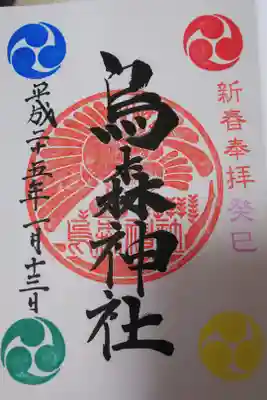 新春奉拝 癸巳
烏森神社
平成二十五年一月十三日